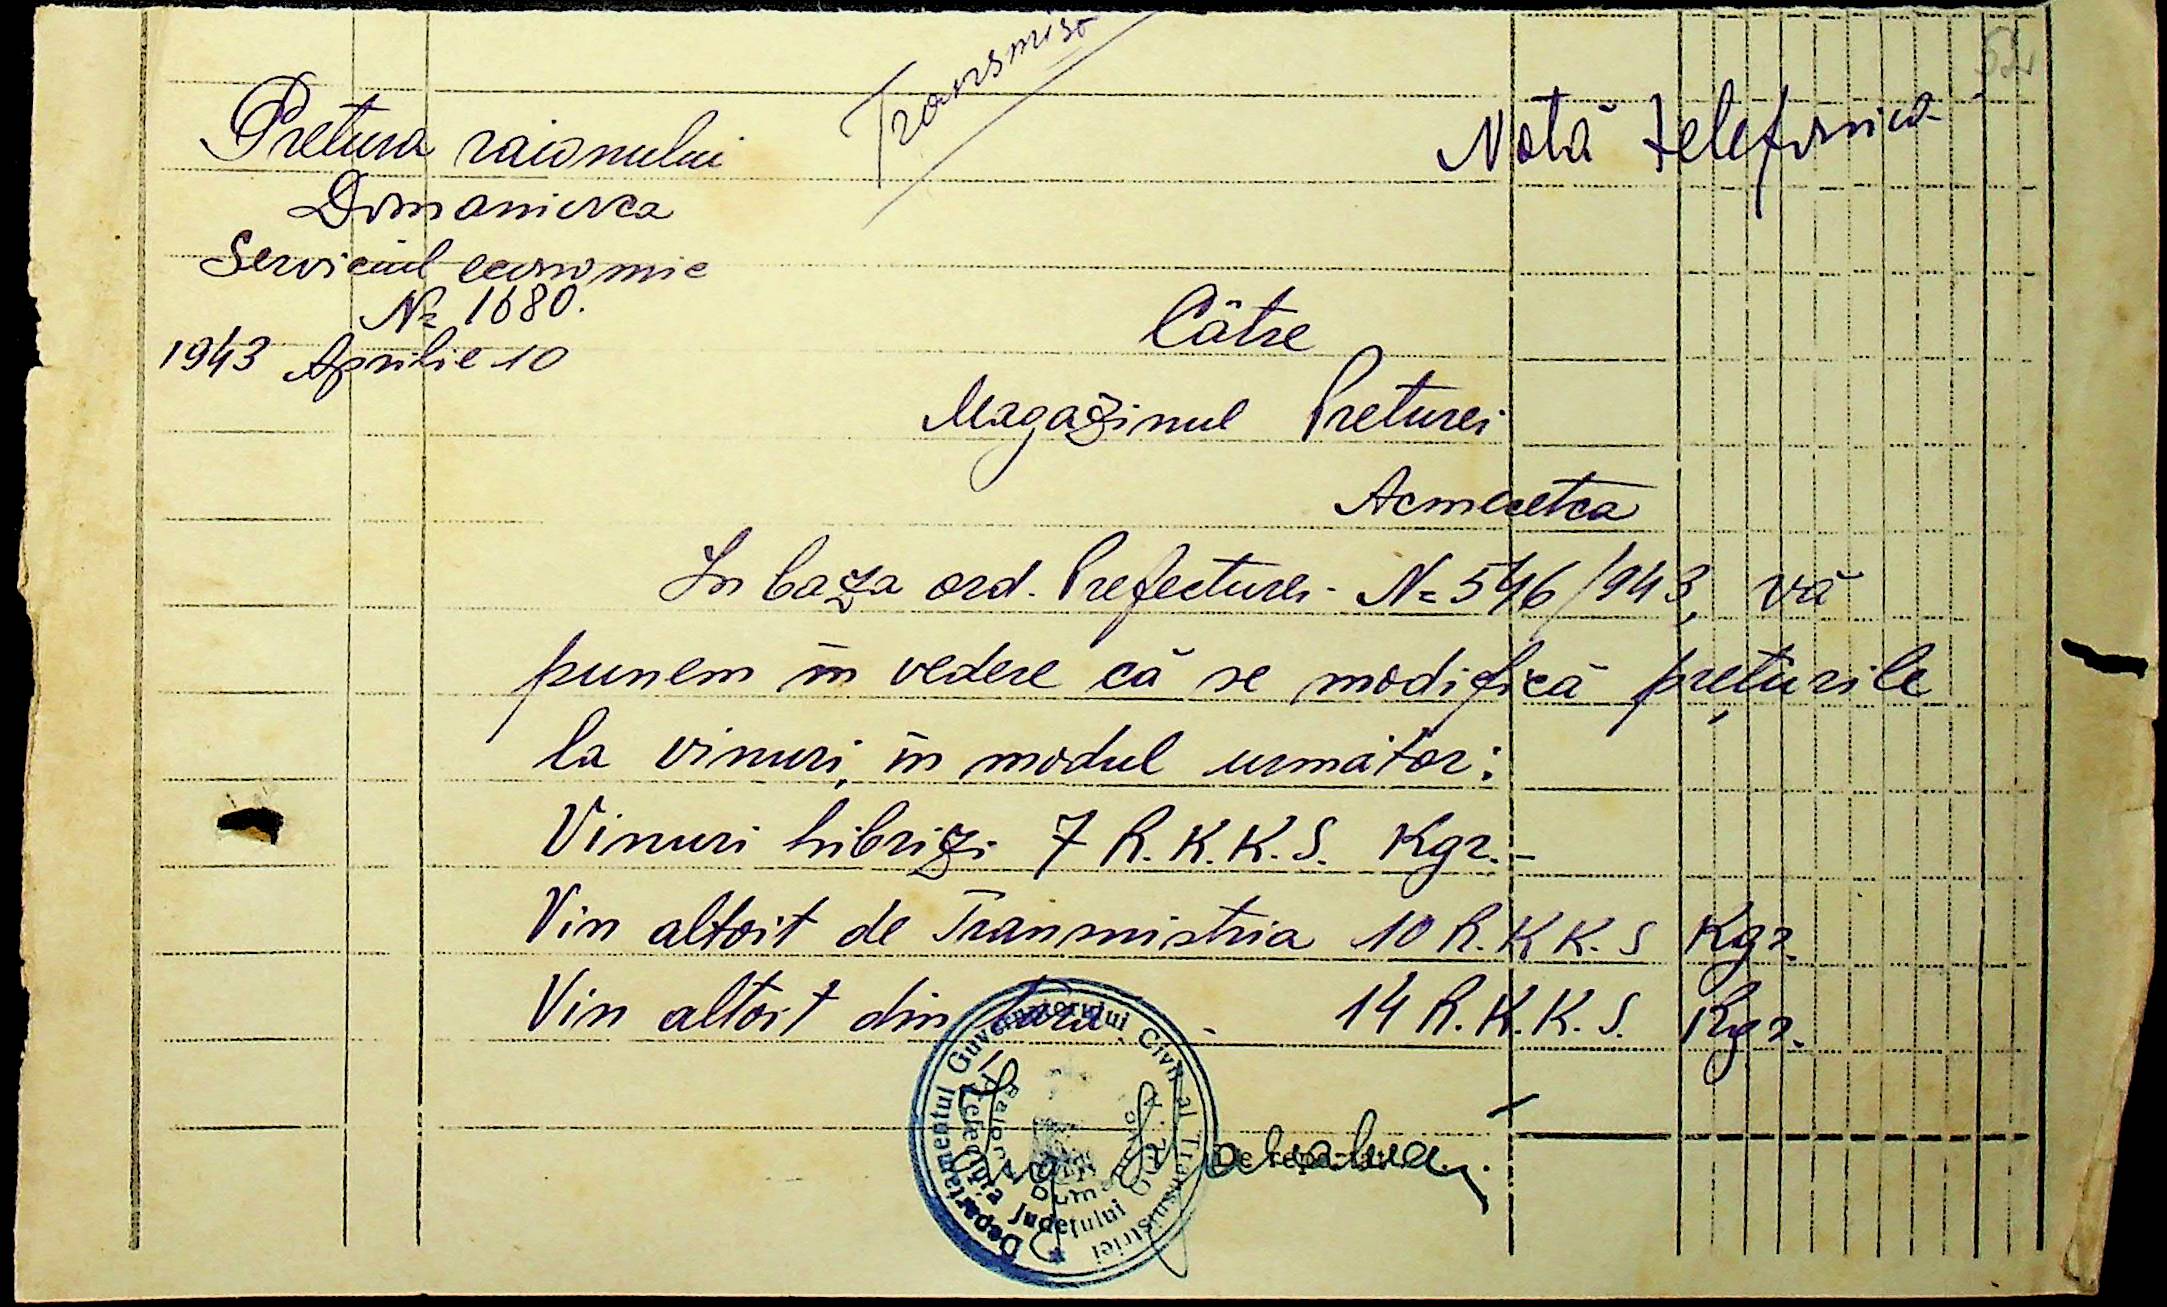 Transmisă
52
Pretura raionului
Domaniovca
Serviciul economic
№ 1680.
1943 Aprilie 10
Notă telefonică
Către
Magazinul Preturei
Acmecetca
In baza ord. Prefecturei № 546/943, vă
punem în vedere că se modifică prețurile
la vinuri, în modul următor:
Vinuri hibrizi 7 R.K.K.S. Kgr.-
Vin altoit de Tranmistria 10 R.K.K.S Kgr.
Vin altoit din țară - 14 R.K.K.S. Kgr.
Departamentul Guvernatorului Civil al Transnistriei
Prefectura Județului